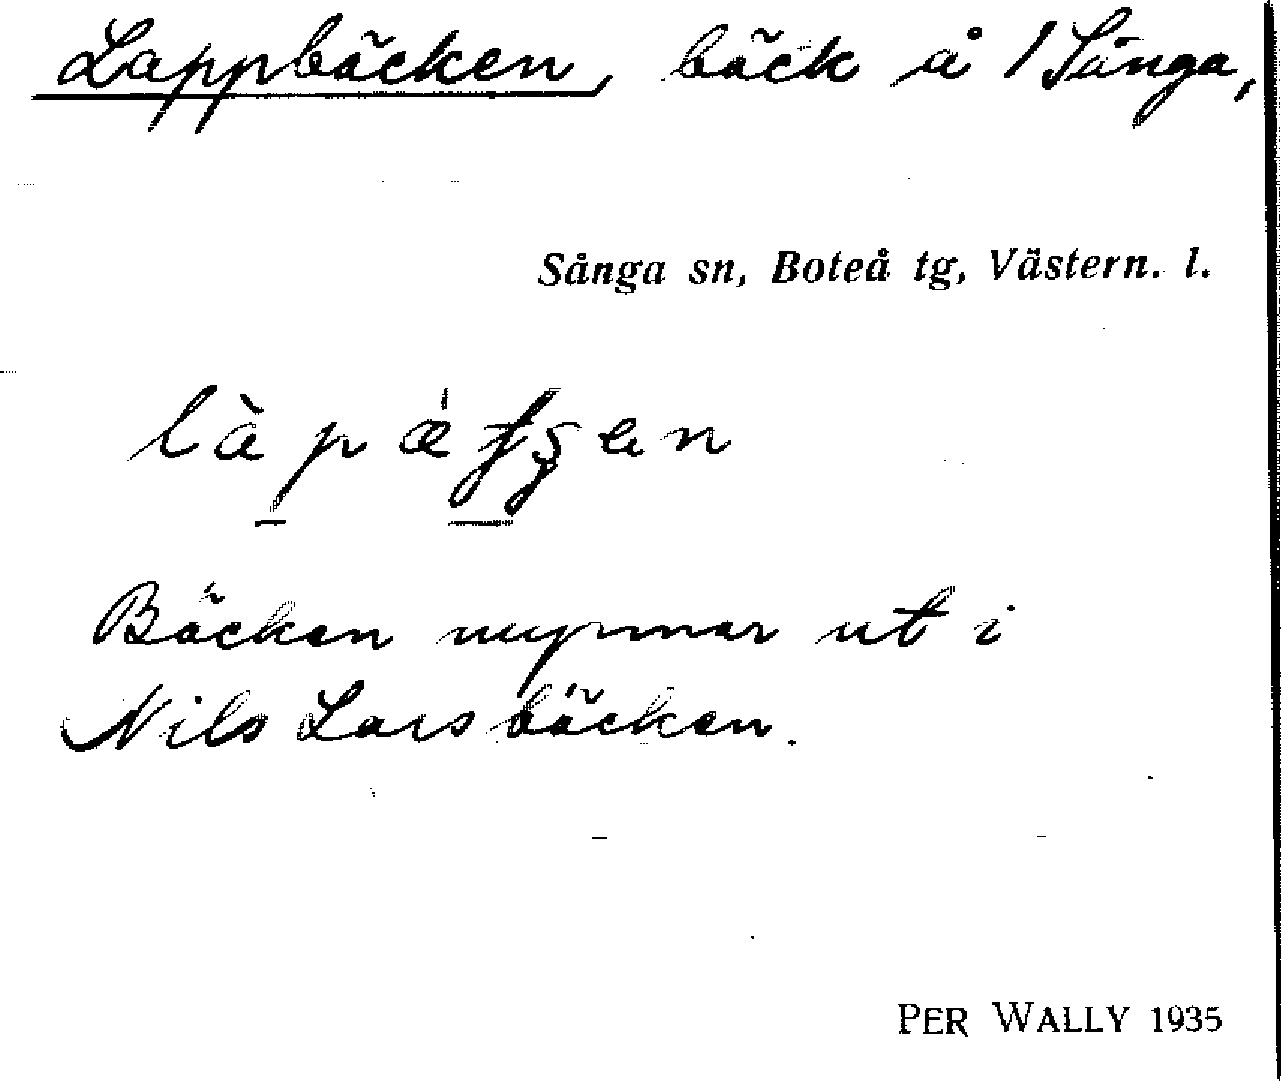 Lappbäcken, bäck å 1 Sånga,
Sånga sn, Boteå tg, Västern. l.
Bäcken mynnar ut i
Nils Larsbäcken.
PER WALLY 1935